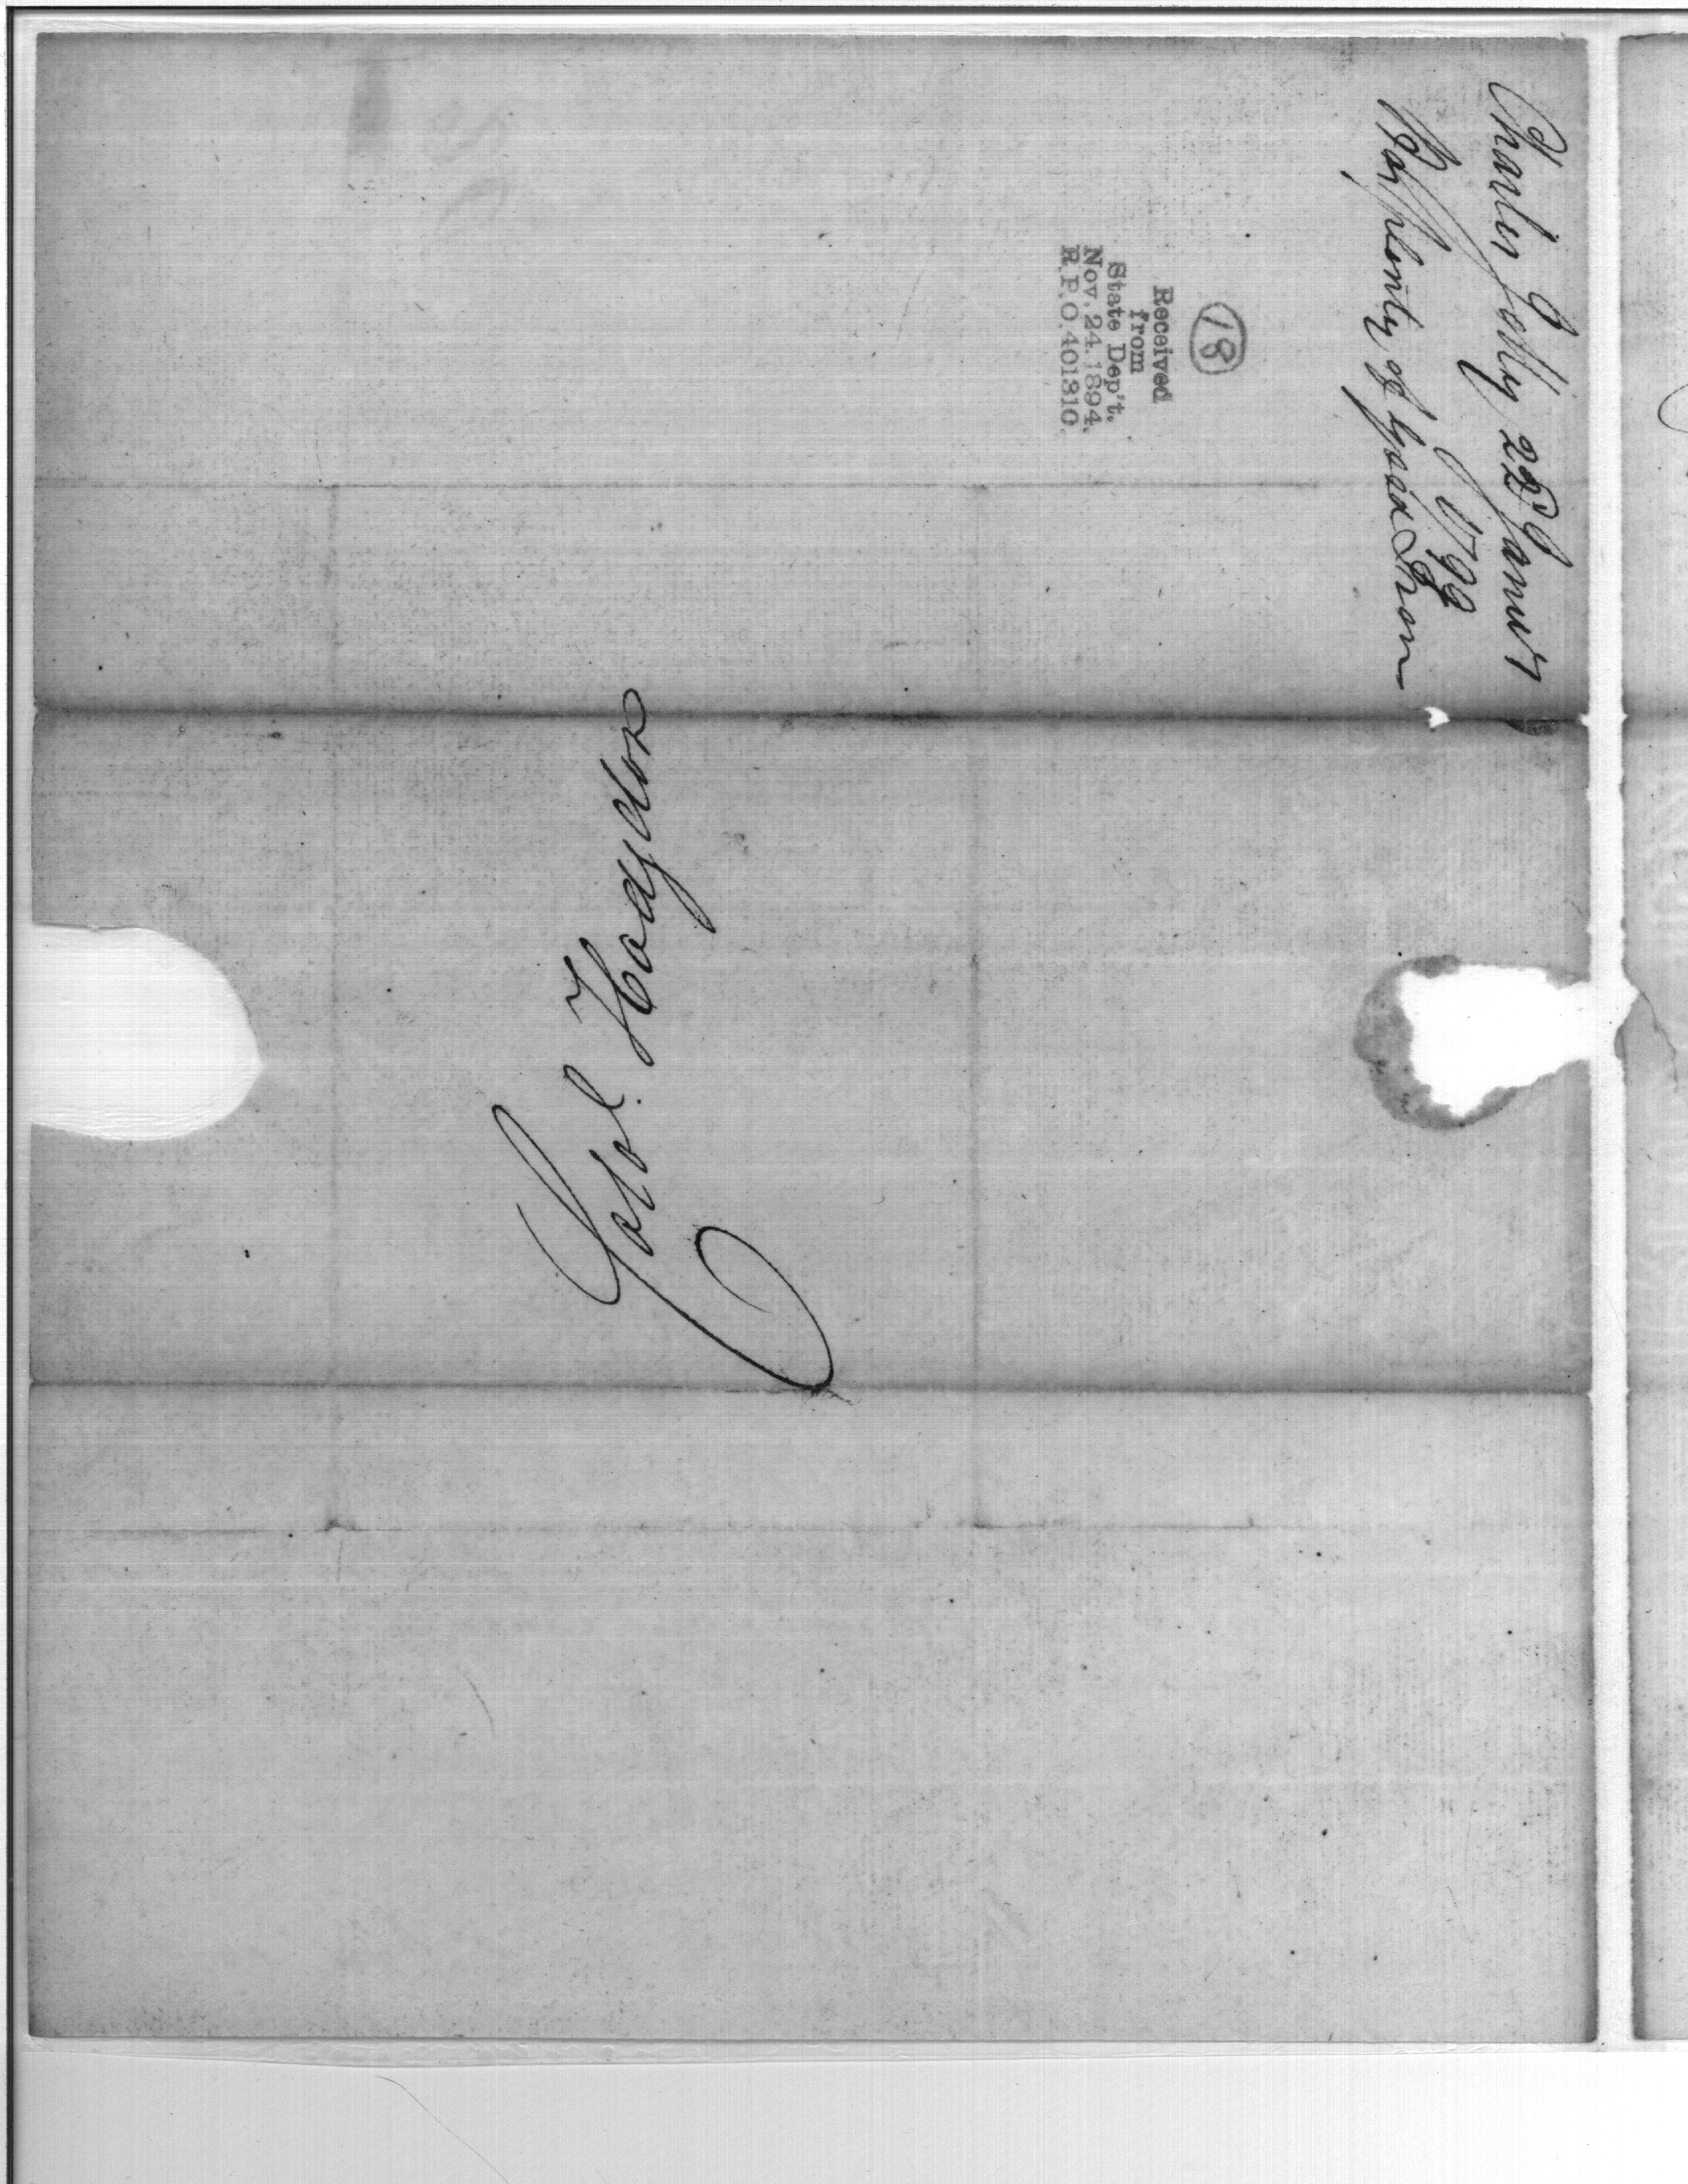 Charles Jolly 22d Janury
1799
Has plenty of good Iron
18
Received
from
State Dep't.
Nov. 24. 1894.
R.P.O. 401310.
Colol. Hodgdon